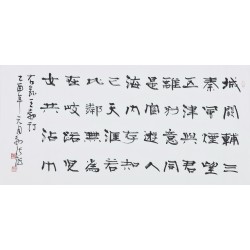 城闕輔三
秦風煙望
五津與君
離別意同
是宦遊人
海內存知
己天涯若
比鄰無為
在歧路兒
女共沾巾
右錄王勃
乙酉年元月